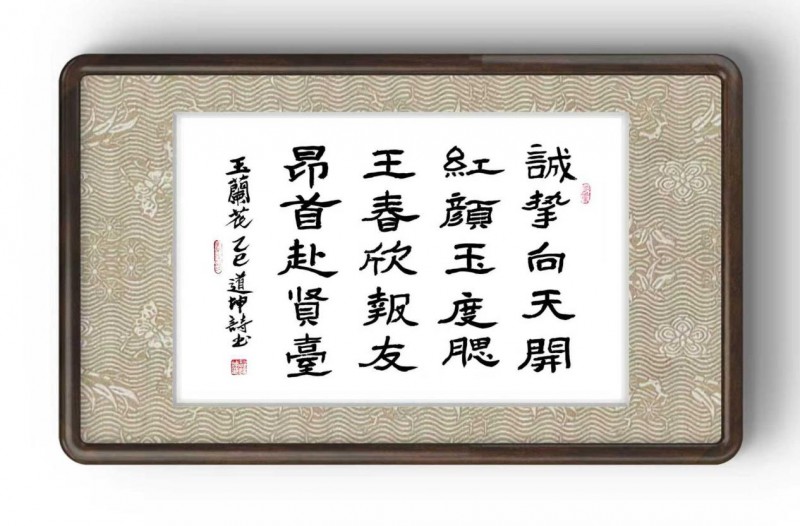 誠摯向天開
紅顏玉度腮
王春欣報友
昂首赴賢臺
玉蘭花 乙巳 道坤詩書